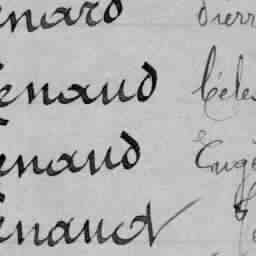 enard Pierr
enaud Céles
enaud Eugè
enaud